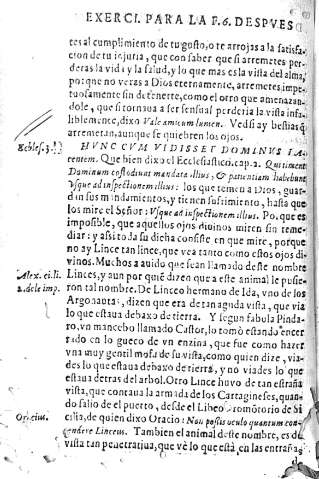 EXERCI. PARA LA F. 6. DESPVES
tes al cumplimiento de tu gusto, o te arrojas a la satisfa-
cion de tu injuria, que con saber que si arremetes per-
deras la vida y la salud, y lo que mas es la vista del alma,
porque no veras a Dios eternamente, arremetes impe-
tuosamente sin detenerte, como el otro que amenazan-
dole, que si tornaua a ser sensual perderia la vista infa-
liblemente, dixo Vale amicum lumen. Ved si ay bestias q̃
arremetan, aunque se quiebren los ojos.
HVNC CVM VIDISSET DOMINVS
rentem. Que bien dixo el Ecclesiastico. cap. 2. Qui timent
Dominum custodiunt mandata illius, & patientiam habebunt
Vsque ad inspectionem illius: los que temen a Dios, guar-
dan sus mandamientos, y tienen sufrimiento, hasta que
los mire el Señor: Vsque ad inspectionem illius. Porque es
imposible, que aquellos ojos diuinos miren sin reme-
diar: y assi toda su dicha consiste en que mire, porque
no ay Lince tan lince, que vea tanto como estos ojos di-
vinos. Muchos a auido que sean llamados deste nombre
Alex. ei. li.
Linces, y aun por quiē dizen que a este animal le pusie-
2. de le imp.
ron tal nombre. De Linceo hermano de Ida, vno de los
Argonautas, dizen que era de tan aguda vista, que via
lo que estaua debaxo de tierra. Y segun fabola Pinda-
ro, vn mancebo llamado Castor, lo tomò estando encer
rado en lo gueco de vn enzina, que fue como hazer
vna muy gentil mofa de su vista, como quien dize, via-
des lo que estaua debaxo de tierra, y no viades lo que
estaua detras del arbol. Otro Lince huvo de tan estraña
vista, que contaua la armada de los Cartagineses, quan-
do salio de el puerto, desde el Libeo promotorio de Si
Oratius.
cilia, de quien dixo Oracio: Non possis oculo quantum con-
tendere Linceus. Tambien el animal deste nombre, es de
vista tan penetratiua, que vè lo que està en las entrañas